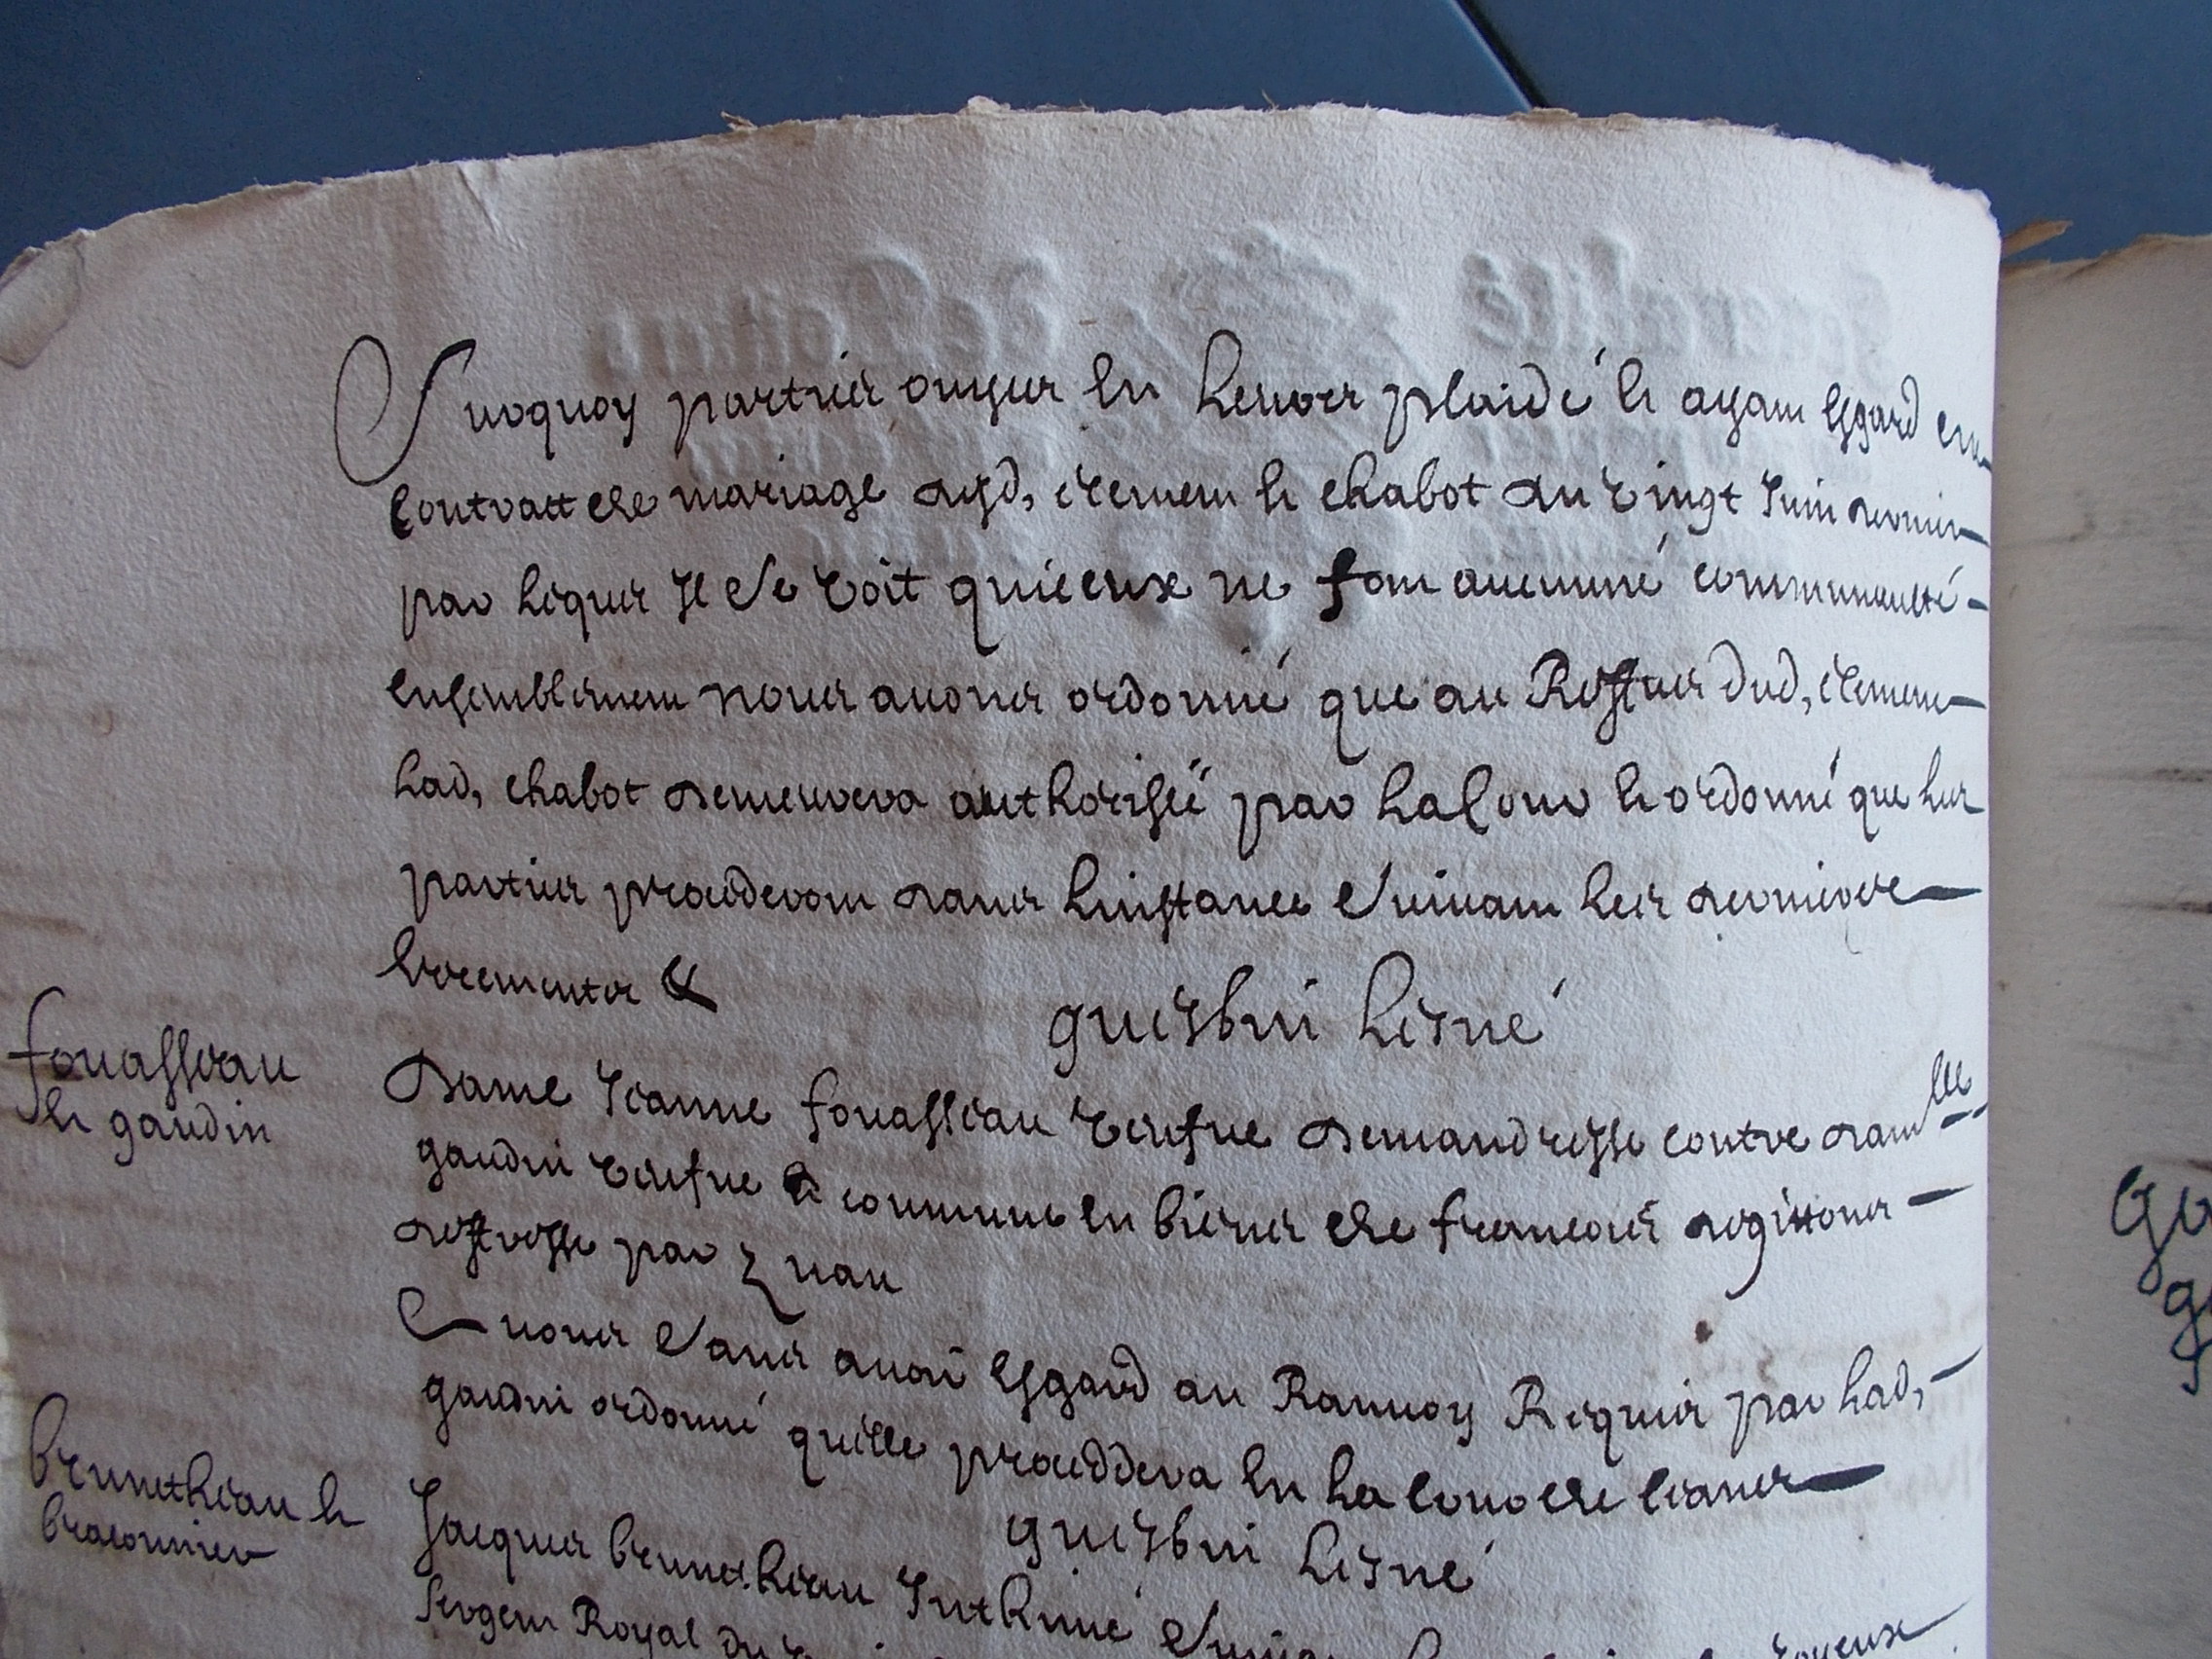 Surquoy parties ouyes en leurs plaidé et ayant esgard au
contract de mariage dud, clement et chabot du vingt Juin dernier
par lequel Il se voit quiceux ne font aucunne communaulté
ensemblement nous avons ordonné que au Reffus dud, clement
lad, chabot demeurera authorisée par la Cour et ordonné que les
parties procedderont dans linstance suivant les derniers
Errements &
guesbin lesné
fouasseau
et gaudin
Dame Jeanne fouasseau veufve demanderesse contre dam lle
gaudin veufve & commune en biens de francois
deffresse par
& nous sans avoir esgard au Renvoy Requis par lad,
gaudin ordonné quelle proceddera en la Cour de ceans
guesbin lesné
brunetheau et
braconnier
Jacques brunetheau Inthimé
sergent Royal